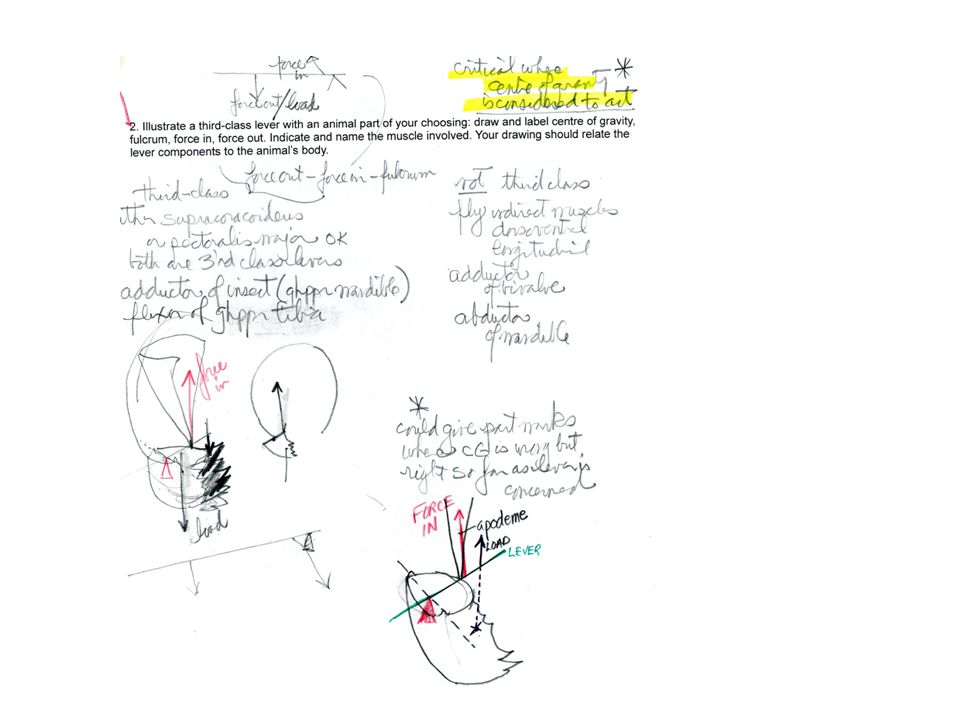 force
in
force out/load
critical where *
centre of gravity
is considered to act
2. Illustrate a third-class lever with an animal part of your choosing: draw and label centre of gravity,
fulcrum, force in, force out. Indicate and name the muscle involved. Your drawing should relate the
lever components to the animal's body.
force out - force in - fulcrum
third-class
supracoracoideus
or pectoralis major OK
both are 3rd class levers
adductor of insect (ghppr mandible)
flexor of ghppr tibia
not third class
fly indirect muscles
dorsoventral
longitudinal
adductor
of bivalve
abductor
of mandible
force
in
load
*
could give part marks
where CG is wrong but
right so far as lever is
concerned
FORCE
IN
apodeme
LOAD
LEVER